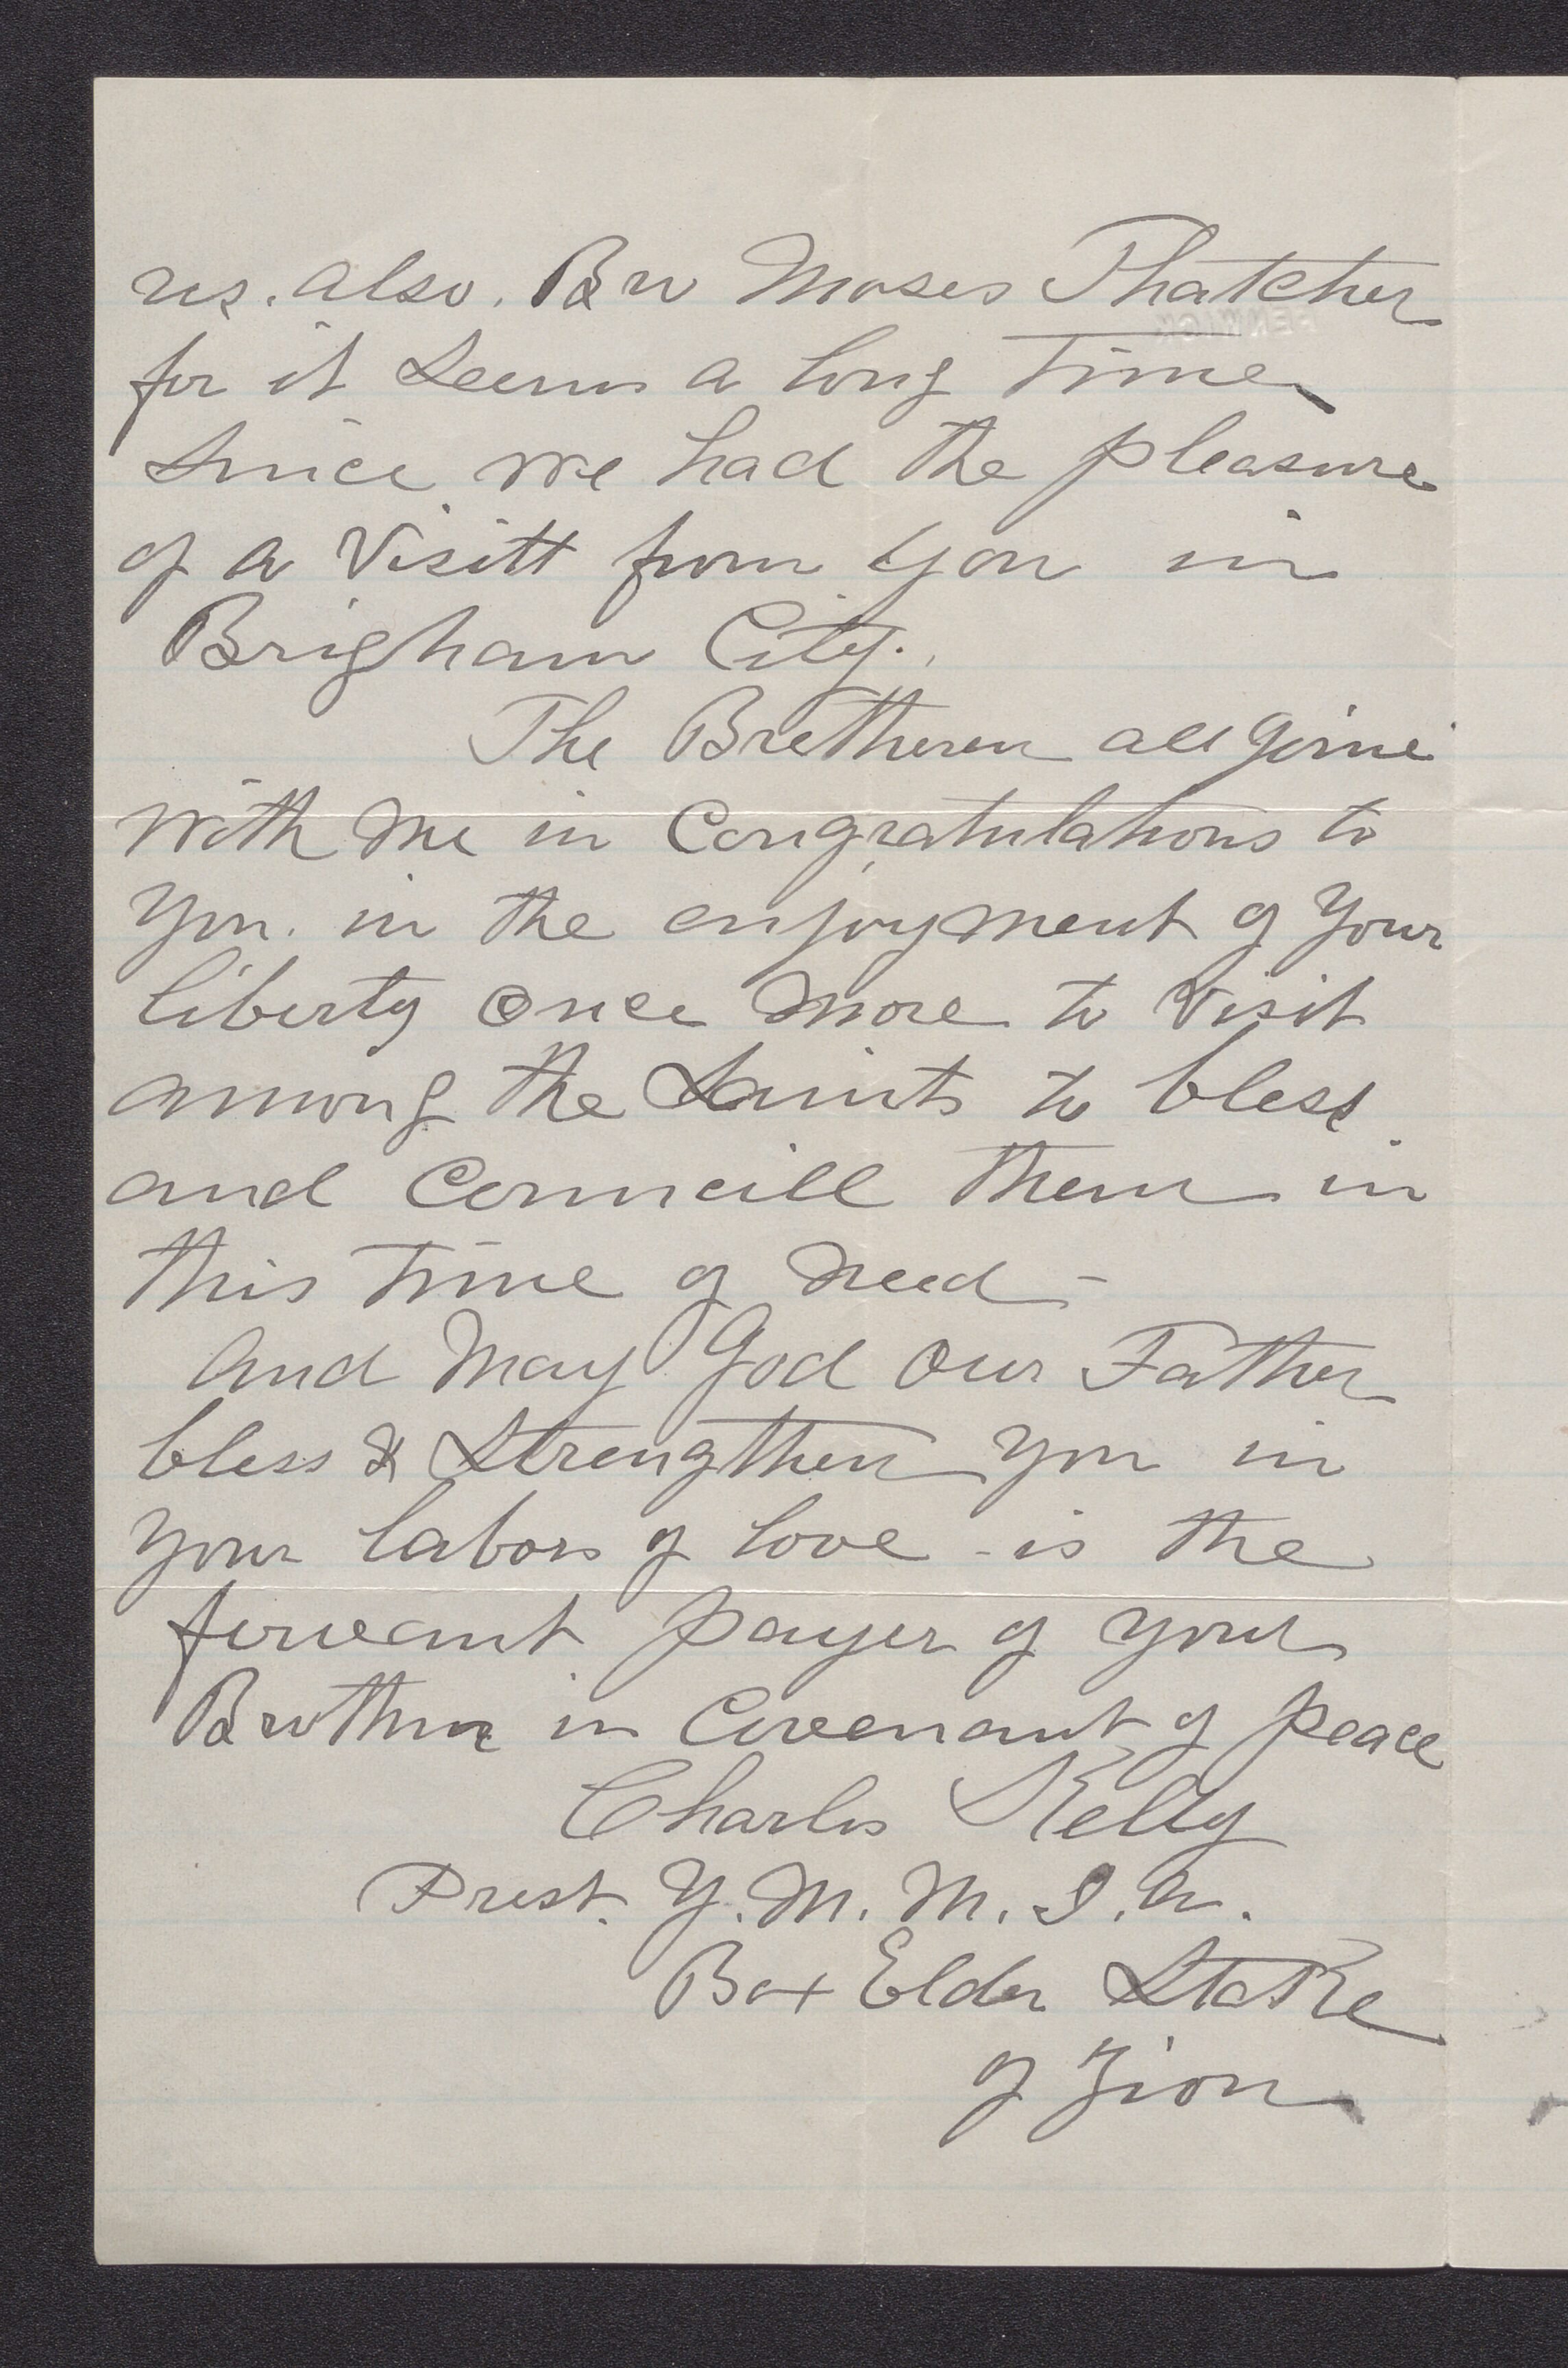 us. also. Bro Moses Thatcher
for it seems a long time
since we had the pleasure
of a Visitt from you in
Brigham City.
The Bretheren all goine
with me in Congratulations to
you. in the enjoyment of your
liberty once more to visit
among the Saints to bless
and Councill them in
this time of need -
and may God our Father
bless & Strengthen you in
your labors of love - is the
ferveant payer of your
Brother in Covenant of peace
Charles Kelly
Prest. Y. M. M. I. A.
Box Elder Stake
of Zion